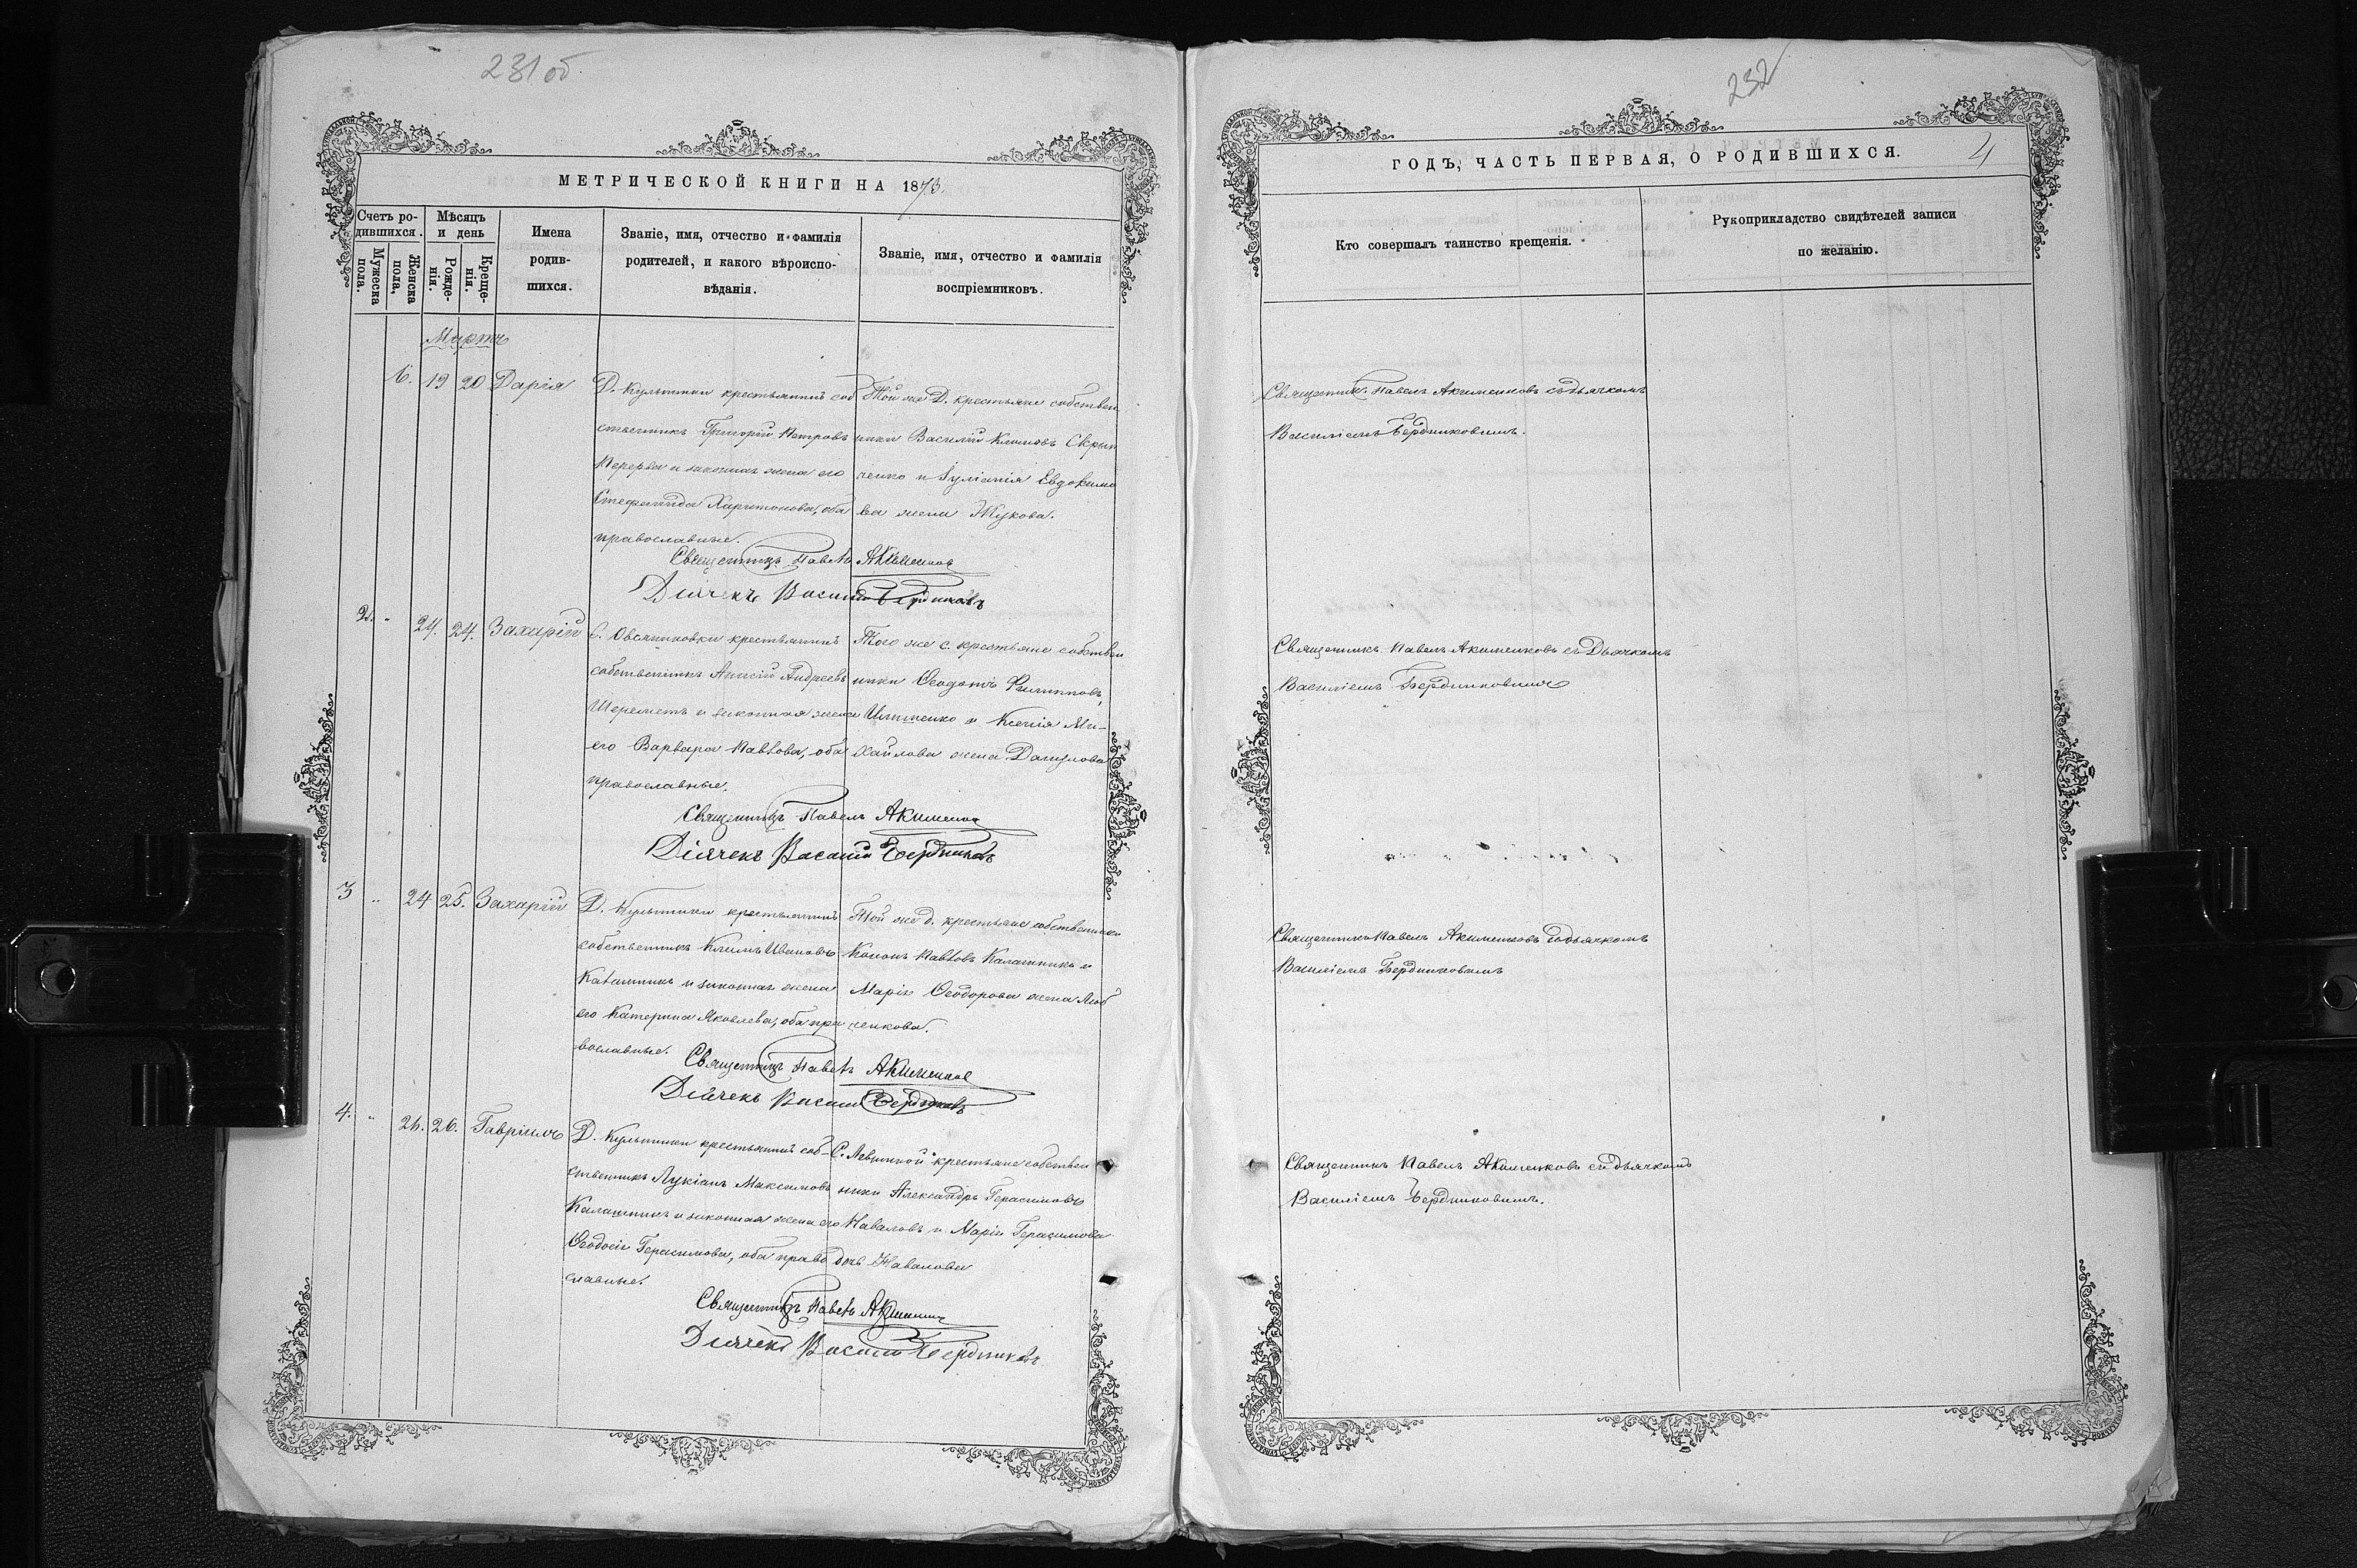 231 об.
МЕТРИЧЕСКОЙ КНИГИ НА 1873
Счетъ ро-
дившихся.
Мужеска
пола.
Женска
пола,
Мѣсяцъ
и день
Рожде-
нія.
Креще-
нія.
Имена
родив-
шихся.
Званіе, имя, отчество и фамилія
родителей, и какого вѣроиспо-
вѣданія.
Званіе, имя, отчество и фамилія
воспріемниковъ.
Мартъ
6. 19 20 Дарія
Д. крестьянинъ соб
ственникъ Григорій Петровъ
Перерва и законная жена его
Стефанида Харитонова, оба
православные.
Той же Д. крестьяне собствен
ники Василій Климовъ Скрып
ченко и Іуліанія Евдокимо
ва жена Жукова.
Священникъ Павелъ Акименковъ
Діячекъ Василій Бердниковъ
2. " 24. 24. Захарій
С. Овсянниковки крестьянинъ
собственникъ Андреевъ
Шереметъ и законная жена
его Варвара Павлова, оба
православные.
Того же с. крестьяне собствен
ники Ѳеодотъ Филипповъ
и Ксенія Ми-
хайлова жена
Священникъ Павелъ Акименковъ
Діячекъ Василій Бердниковъ
3 " 24 25. Захарій
Д. крестьянинъ
собственникъ Климъ Ивановъ
Калашникъ и законная жена
его Катерина Яковлева, оба пра
вославные.
Той же д. крестьяне собственники
Кононъ Павловъ Калашникъ и
Марія Ѳеодорова жена
ченкова.
Священникъ Павелъ Акименковъ
Діячекъ Василій Бердниковъ
4. " 26. 26. Гавріилъ
Д. крестьянинъ соб-
ственникъ Лукіанъ Максимовъ
Калашникъ и законная жена его
Ѳеодосія Герасимова, оба право
славные.
С. крестьяне собствен
ники Александръ Герасимовъ
Коваловъ и Марія Герасимова
дочь Ковалова
Священникъ Павелъ Акименковъ
Діячекъ Василій Бердниковъ
232
ГОДЪ, ЧАСТЬ ПЕРВАЯ, О РОДИВШИХСЯ.
4
Кто совершалъ таинство крещенія.
Рукоприкладство свидѣтелей записи
по желанію.
Священникъ Павелъ Акименковъ съ дьячкомъ
Василіемъ Бердниковымъ.
Священникъ Павелъ Акименковъ съ Дьячкомъ
Василіемъ Бердниковымъ
Священникъ Павелъ Акименковъ съ дьячкомъ
Василіемъ Бердниковымъ
Священникъ Павелъ Акименковъ съ дьячкомъ
Василіемъ Бердниковымъ.